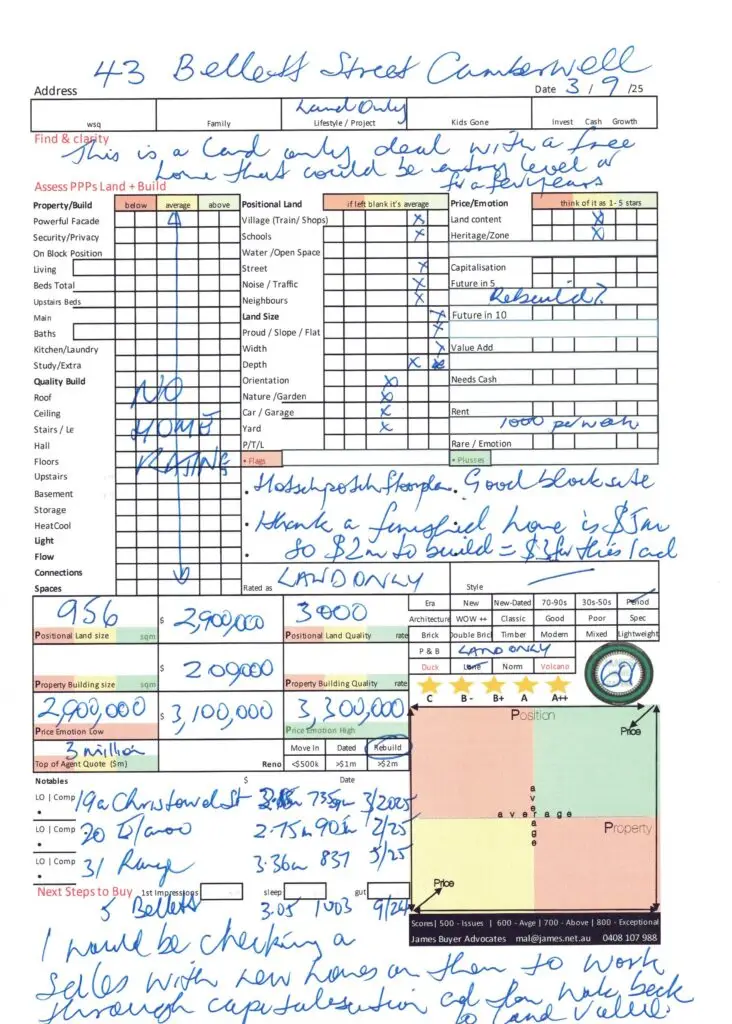 43 Bellett Street Camberwell
Address Date 3 / 9 /25
Land Only
wsq Family Lifestyle / Project Kids Gone Invest Cash Growth
Find & clarity
This is a Land only deal with a free
home that could be entry level or
for a few years
Assess PPPs Land + Build
Property/Build below average above Positional Land if left blank it's average Price/Emotion think of it as 1- 5 stars
Powerful Facade Village (Train/ Shops) X Land content X
Security/Privacy Schools X Heritage/Zone X
On Block Position Water /Open Space
Living Street X Capitalisation
Beds Total Noise / Traffic X Future in 5
Upstairs Beds Neighbours X Rebuild?
Main Land Size X Future in 10
Baths Proud / Slope / Flat X
Kitchen/Laundry Width X Value Add
Study/Extra Depth X X
Quality Build Orientation X Needs Cash
Roof NO Nature /Garden X
Ceiling Car / Garage X Rent
Stairs / Le HOME Yard X 1000 per week
Hall P/T/L Rare / Emotion
Floors RATING • Flags • Plusses
Upstairs • floorplan. Good block size
Basement
Storage • a finished home is $5m
HeatCool
Light • so $2m to build = $3 for this land
Flow
Connections
Spaces Rated as LAND ONLY Style
956 $ 2,900,000 3000 Era New New-Dated 70-90s 30s-50s Period
Architecture WOW ++ Classic Good Poor Spec
Positional Land size sqm Positional Land Quality rate Brick Double Bric Timber Modern Mixed Lightweight
$ 200,000 P & B LAND ONLY
Property Building size sqm Property Building Quality rate Duck Norm Volcano
2,900,000 $ 3,100,000 3,300,000 C B - B+ A A++
Price Emotion Low Price Emotion High Position
3 million Move In Dated Rebuild Price
Top of Agent Quote ($m) Reno <$500k >$1m >$2m
Notables $ Date
LO | Comp 19a St 735 3/2025
• average
LO | Comp 20 2.75m 2/25
• average
LO | Comp 31 Range 3.36m 837 5/25 Property
•
Next Steps to Buy 1st Impressions sleep gut Price
5 Bellett 3.05 1003 9/24
Scores| 500 - Issues | 600 - Avge | 700 - Above | 800 - Exceptional
James Buyer Advocates mal@james.net.au 0408 107 988
I would be checking a
sales with new homes on them to work
through capitalisation and then work back
to land value